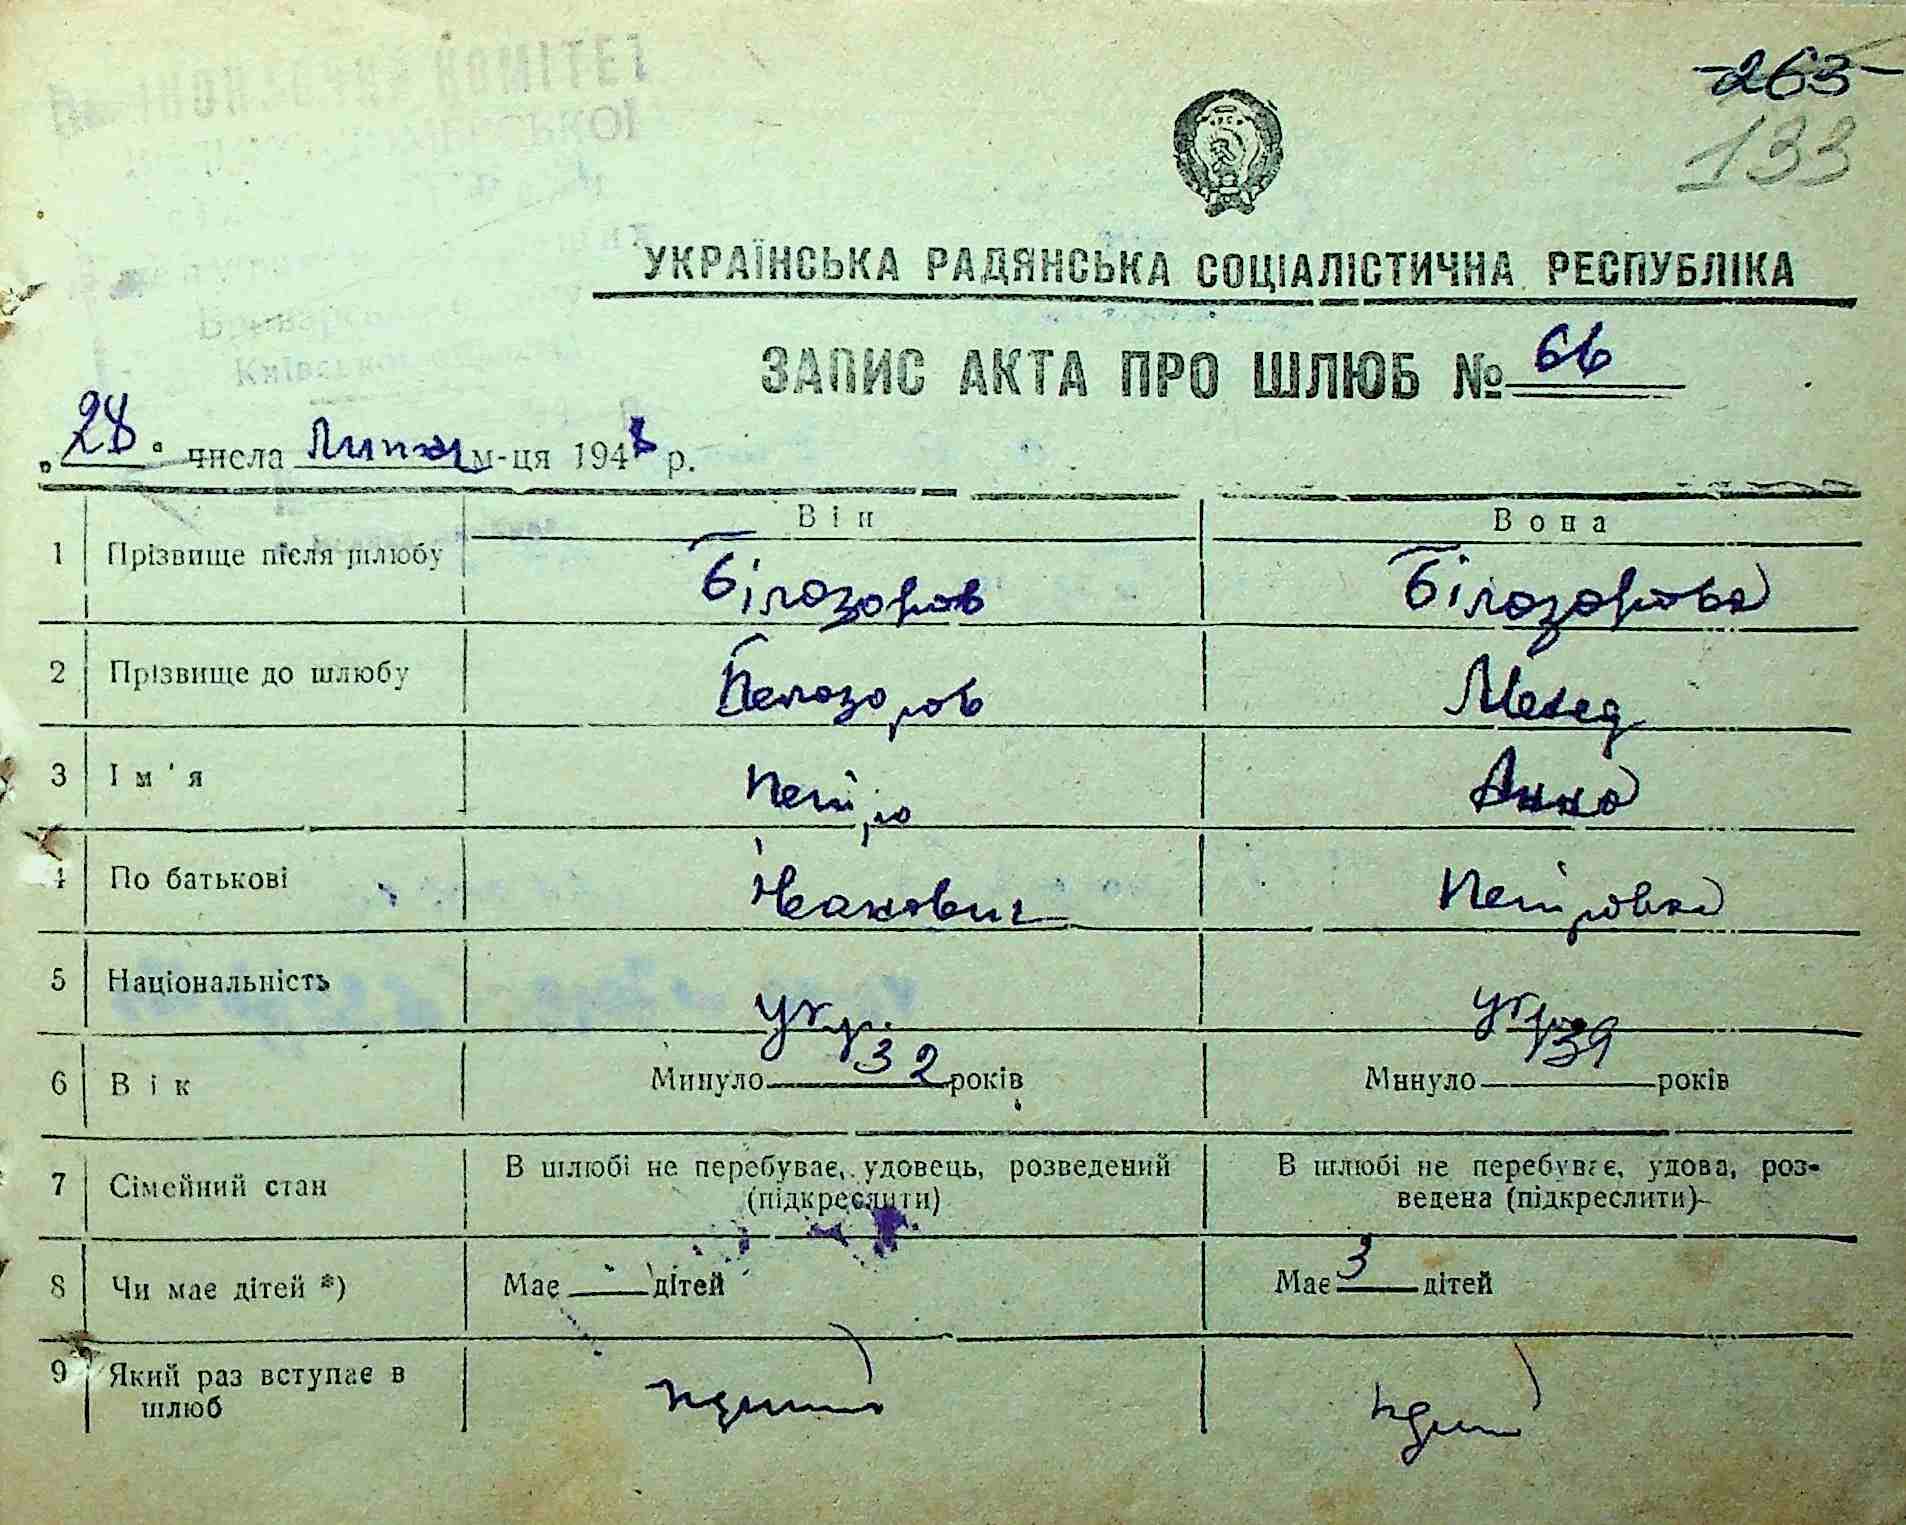 КОМІТЕТ
263
133
УКРАЇНСЬКА РАДЯНСЬКА СОЦІАЛІСТИЧНА РЕСПУБЛІКА
ЗАПИС АКТА ПРО ШЛЮБ № 66
„28" числа Липня м-ця 1948 р.
Він Вона
1 Прізвище після шлюбу Білозоров Білозорова
2 Прізвище до шлюбу Белозоров
3 Ім'я Петро Анна
4 По батькові Іванович Петровна
5 Національність укр. укр.
6 Вік Минуло 32 років Минуло 39 років
7 Сімейний стан В шлюбі не перебуває, удовець, розведений В шлюбі не перебуває, удова, роз-
(підкреслити) ведена (підкреслити)
8 Чи має дітей *) Має дітей Має 3 дітей
9 Який раз вступає в
шлюб